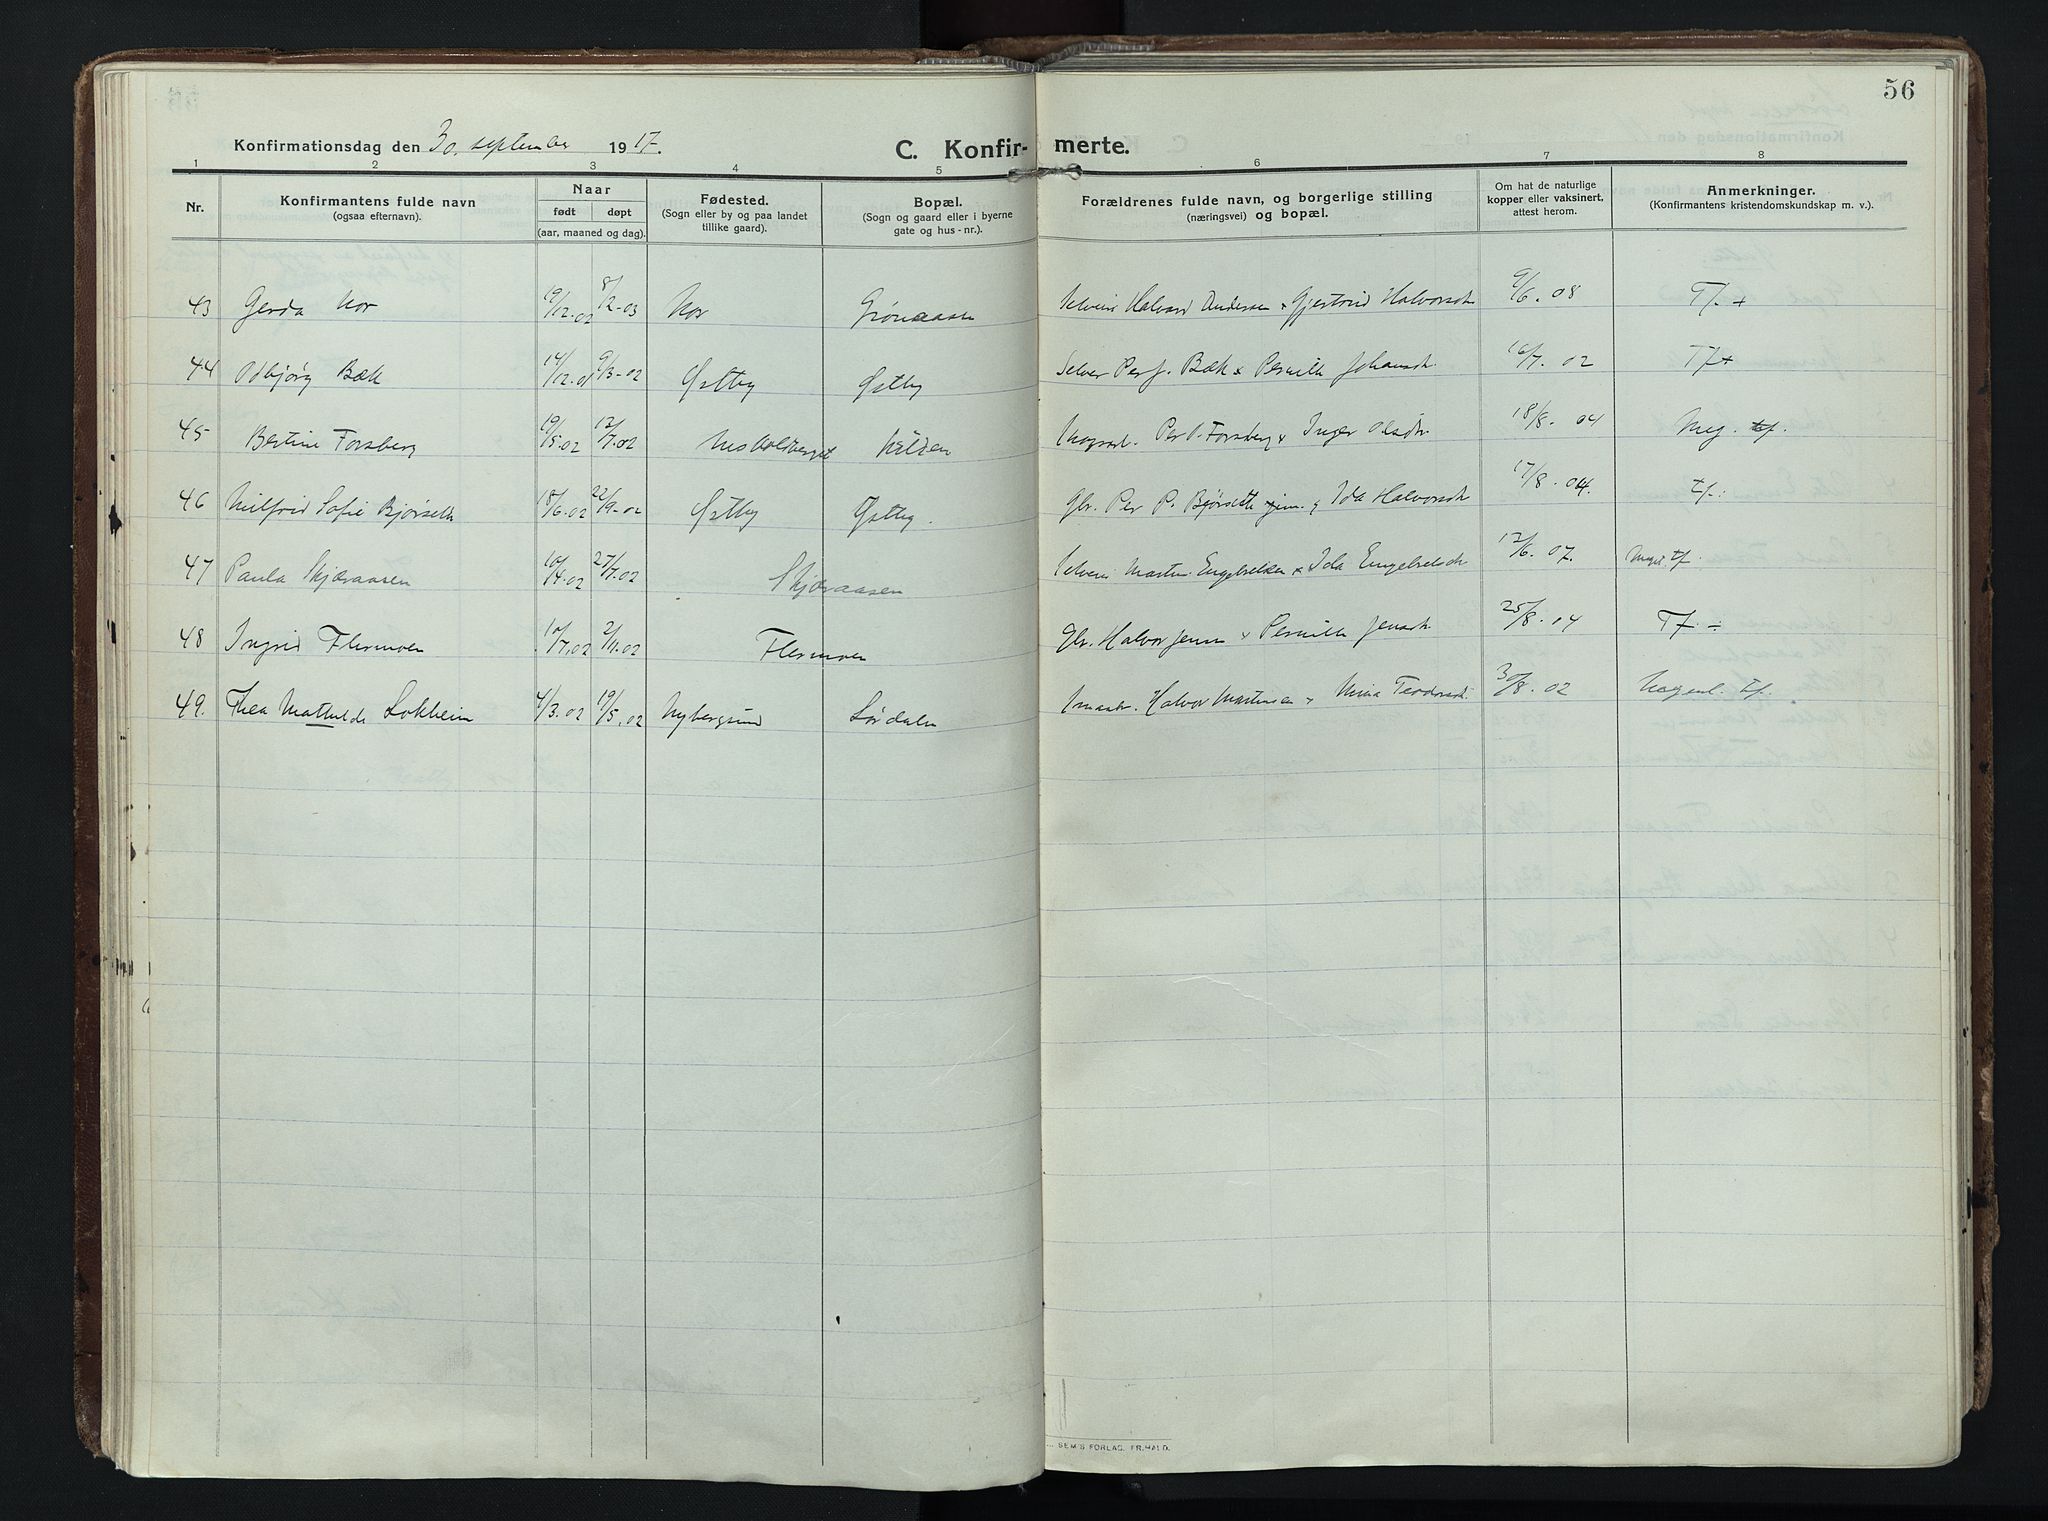 56
Konfirmationsdag den 30. september 1917.
C. Konfirmerte.
1 2 3 4 5 6 7 8
Nr.
Konfirmantens fulde navn
(ogsaa efternavn).
Naar
født døpt
(aar, maaned og dag).
Fødested.
(Sogn eller by og paa landet
tillike gaard).
Bopæl.
(Sogn og gaard eller i byerne
gate og hus-nr.).
Forældrenes fulde navn, og borgerlige stilling
(næringsvei) og bopæl.
Om hat de naturlige
kopper eller vaksinert,
attest herom.
Anmerkninger.
(Konfirmantens kristendomskundskap m. v.).
43 Gerda Nor 19/12.02 8/2-03 Nor Grønaasen Halvard Andersen Gjertrud Halvorsdt 9/6.08 Tf. +
44 Odbjørg Bæk 14/12.01 9/3-02 Østby Østby Selver Per J. Bæk & Pernille Johansdt. 16/7.02 Tf +
45 Bertine Forsberg 19/5.02 12/7.02 Per O. Forsberg & Inger Olsdtr. 18/8.04 Meg. tf.
46 Milfrid Sofie Bjørseth 18/6.02 22/9-02 Østby Østby. Gbr. Per P. Bjørseth jun. & Ida Halvorsdt 17/8.04. tf.
47 Paula Skjæraasen 10/4.02 27/7.02 Skjæraasen Martin Engebretsen & Ida Engebretsdt 12/6.07. Meget tf.
48 Ingrid Flermoen 10/7.02 2/11.02 Flermoen Gbr. Halvor Jensen & Pernille Jensdt. 25/8.04 Tf. ÷
49. Thea Mathilde Lokheim 4/3.02 19/5.02 Nybergsund Lørdalen Halvor Martinsen & Mina Teodorsdt. 30/8.02 Nogenl. tf.
SEM'S FORLAG. FR.HALD.